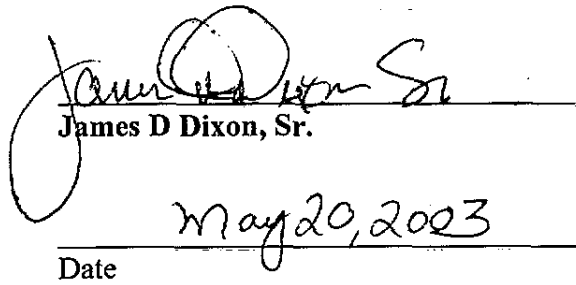 James D Dixon Sr
James D Dixon, Sr.
May 20, 2003
Date